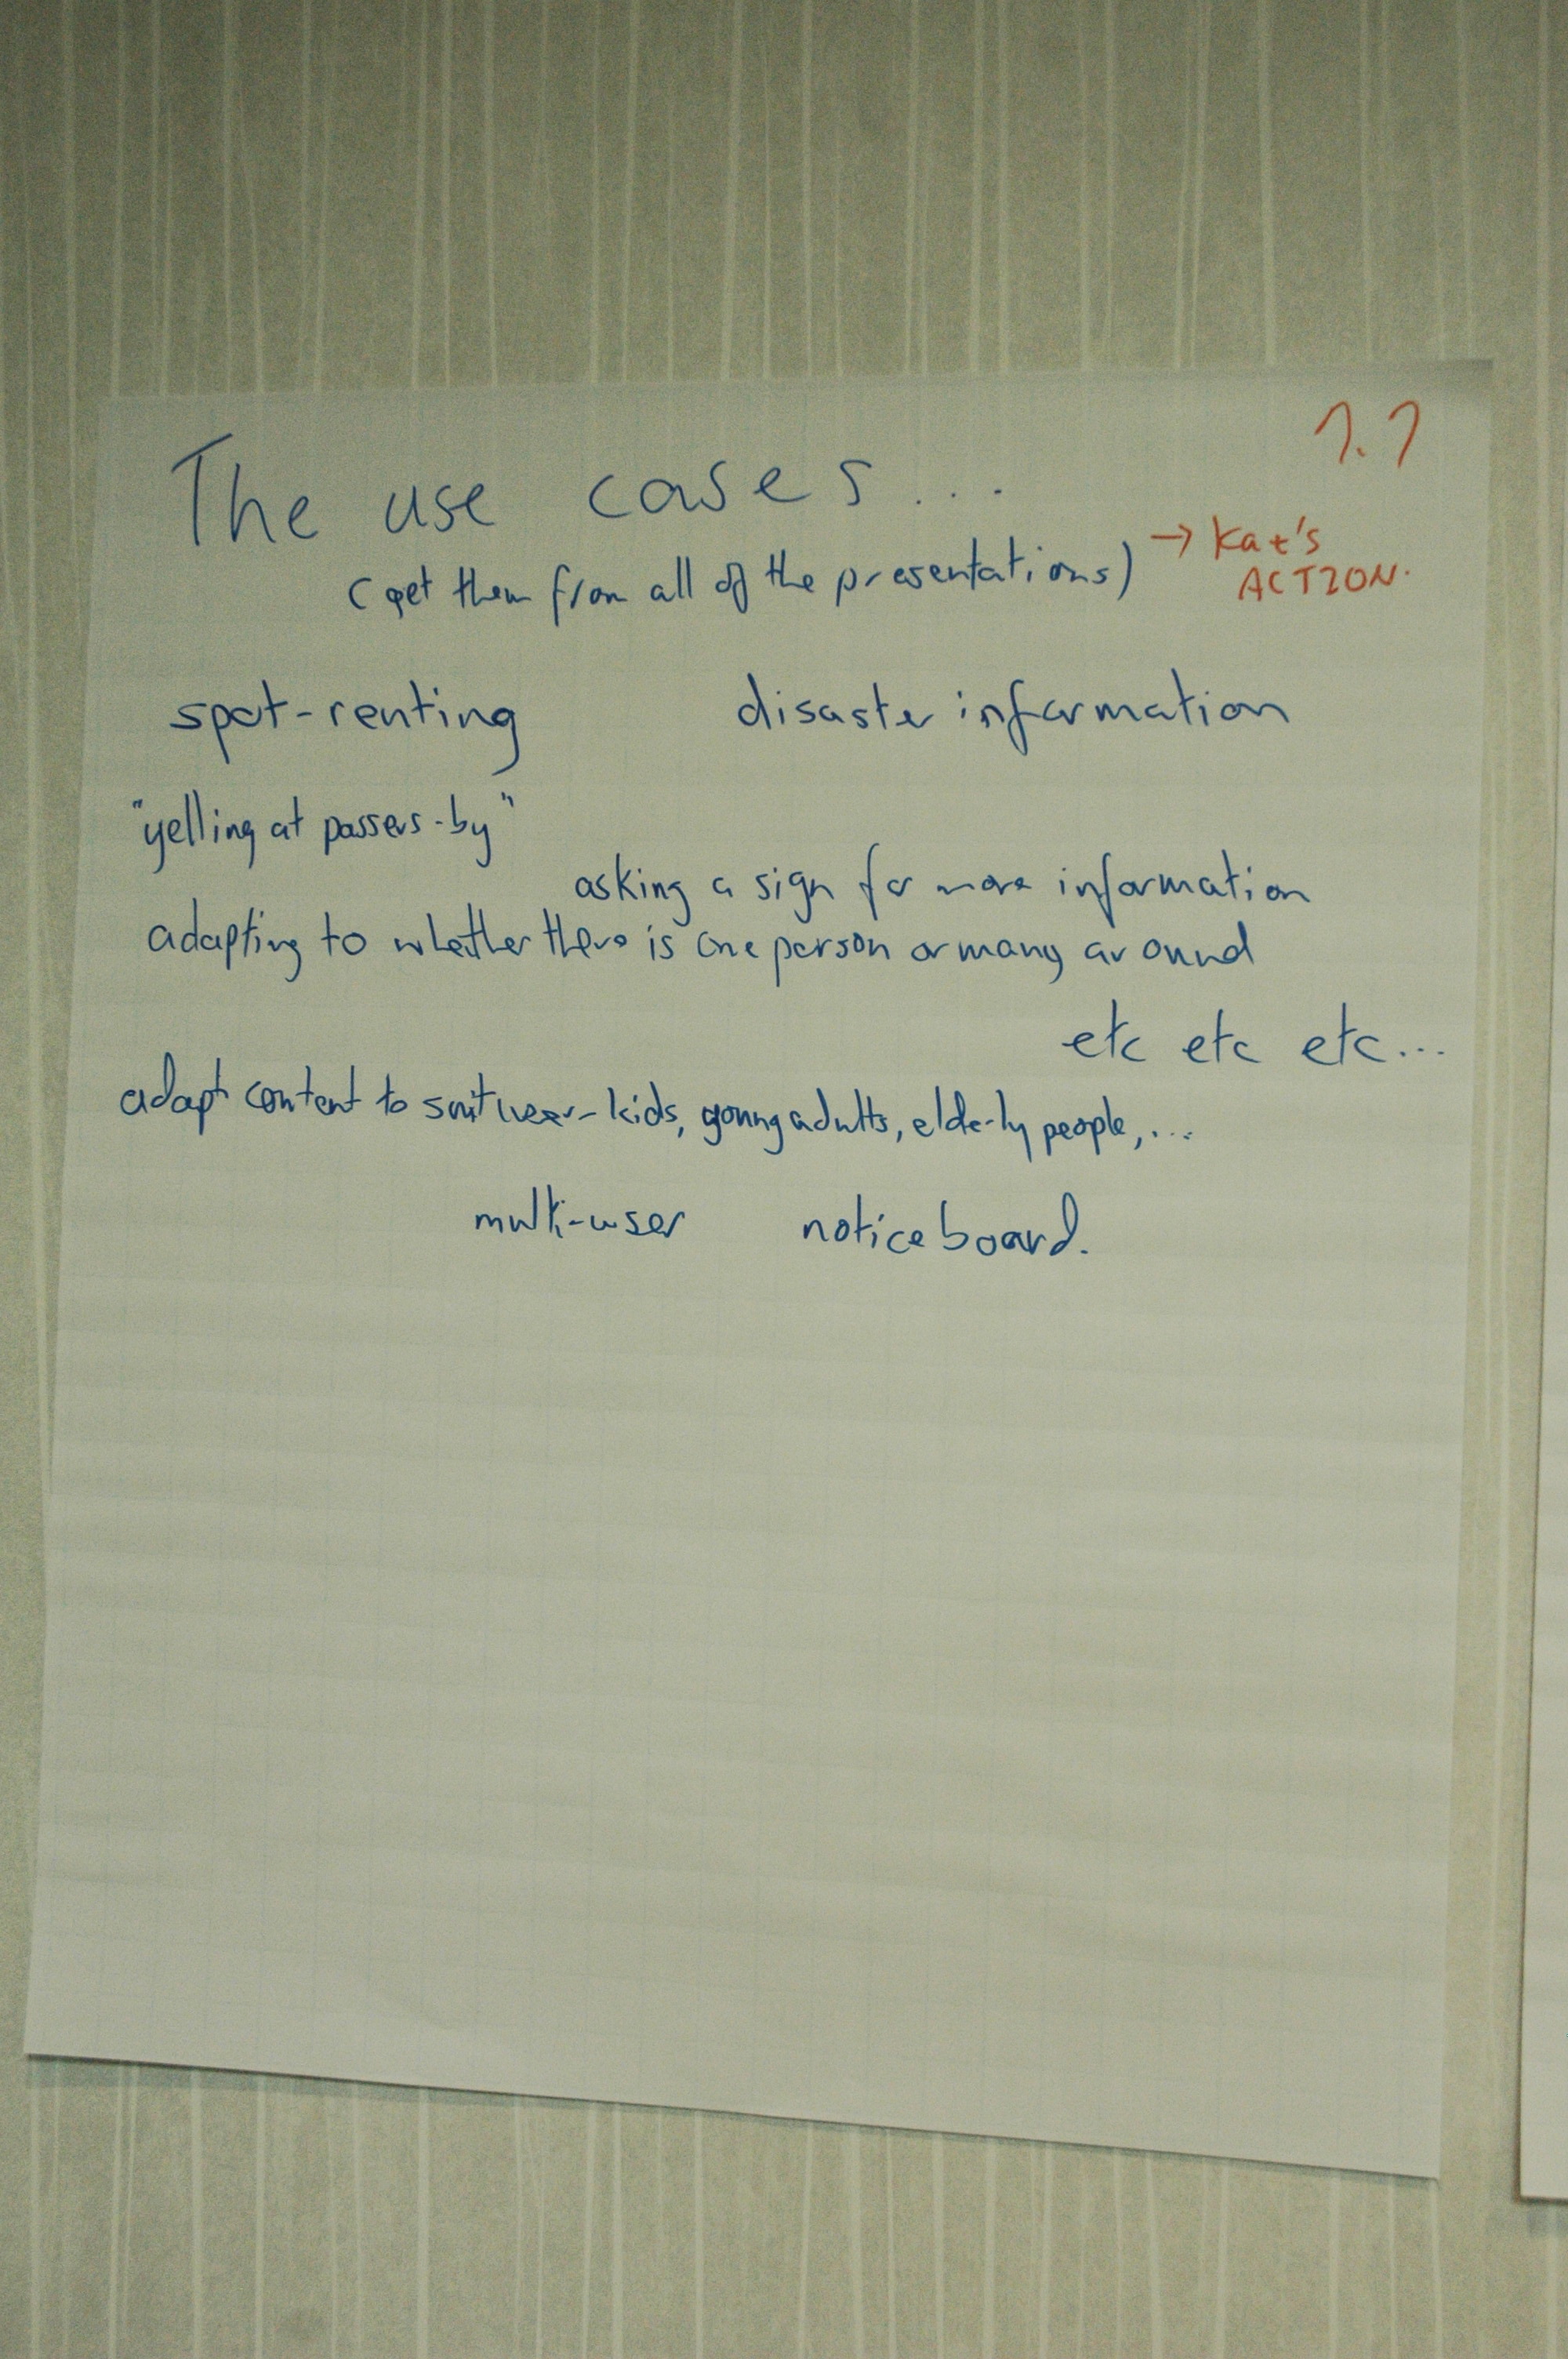 1.1
The use cases...
(get them from all of the presentations) → Kaz's
ACTION.
spot-renting disaster information
"yelling at passers-by"
asking a sign for more information
adapting to whether there is one person or many around
etc etc etc...
adapt content to suit user - kids, young adults, elderly people,...
multi-user noticeboard.